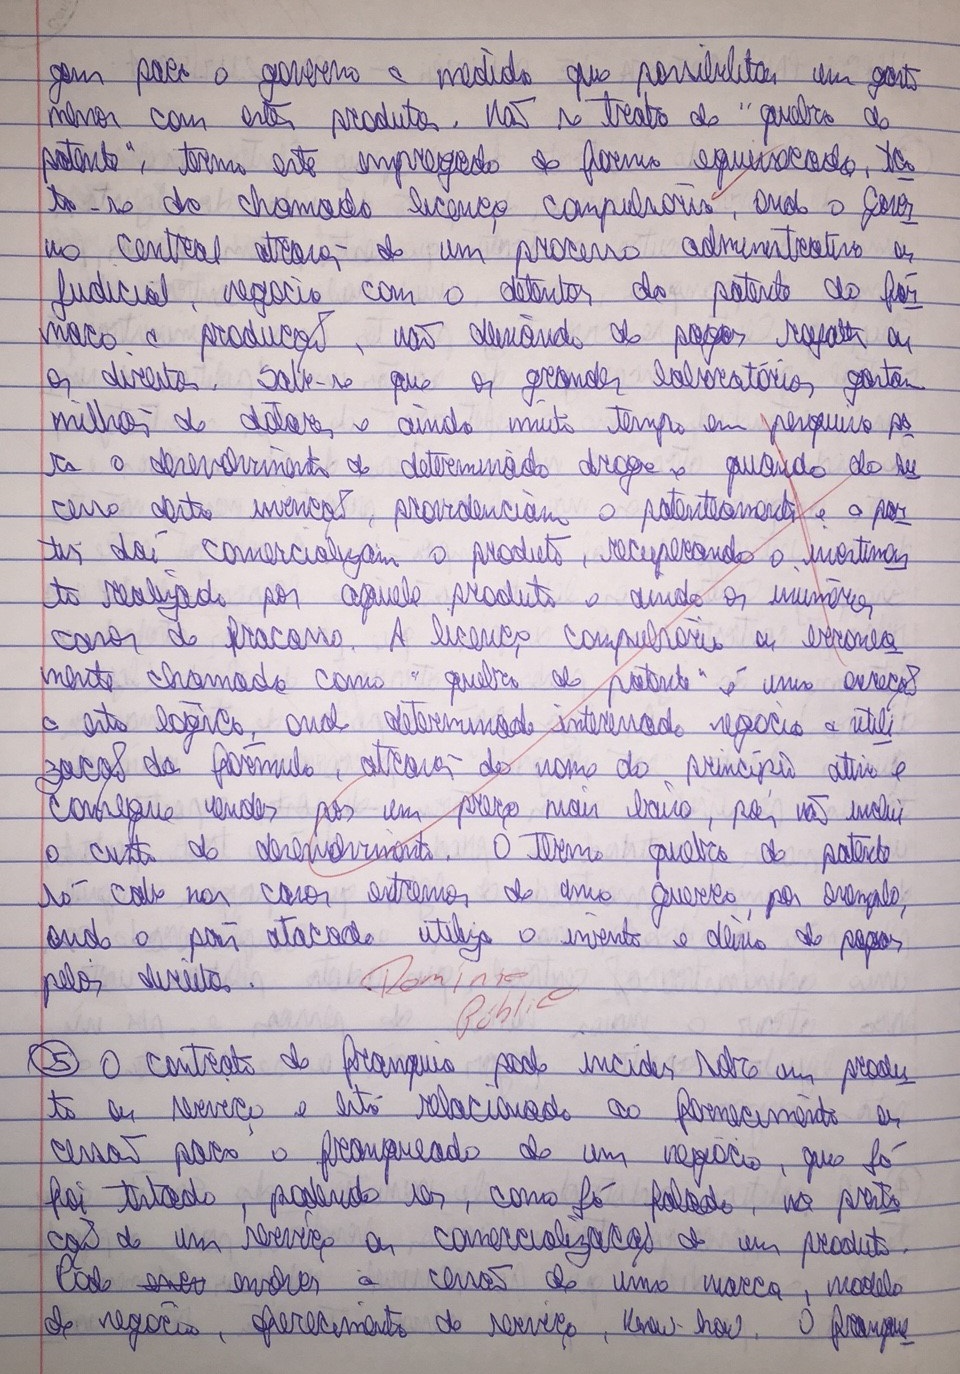 gem para o governo a medida que possibilitam um gasto
menor com estes produtos. Não se trata de "quebra de
patente", termo este empregado de forma equivocada, tra
ta-se da chamada licença compulsória, onde o Gover
no Central através de um processo administrativo ou
judicial, negocia com o detentor da patente do fár
maco a produção, não deixando de pagar royalts ou
os direitos. Sabe-se que os grandes laboratórios gastam
milhões de dólares e ainda muito tempo em pesquisa pa
ra o desenvolvimento de determinada droga e quando do su
cesso desta invenção, providenciam o patenteamento e a par
tir daí comercializam o produto, recuperando o investimen
to realizado por aquele produto e ainda os inúmeros
casos de fracasso. A licença compulsória ou erronea
mente chamada como "quebra de patente" é uma exceção
a esta lógica, onde determinado interessado negocia a utili
zação da fórmula, através do nome do princípio ativo e
consegue vender por um preço mais baixo, pois não inclui
o custo do desenvolvimento. O termo quebra de patente
só cabe nos casos extremos de uma guerra, por exemplo,
onde o país atacado utiliza o invento e deixa de pagar
pelos direitos.
Domínio
Público
5 O contrato de franquia pode incidir sobre um produ
to ou serviço e está relacionado ao fornecimento ou
cessão para o franqueado de um negócio, que já
foi testado, podendo ser, como já falado, na presta
ção de um serviço ou comercialização de um produto.
Pode envolver a cessão de uma marca, modelo
de negócio, oferecimento de serviço, know-how. O franque